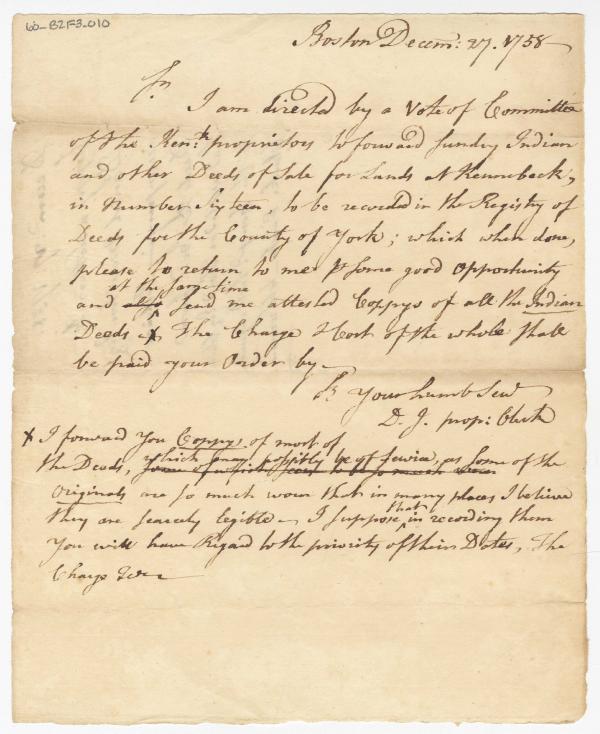 60-B2F3-010
Boston Decem: 27. 1758
Sr
I am directed by a Vote of Committee
of the Kenk proprietors to forward sundry Indian
and other Deeds of Sale for Lands at Kennebeck,
in Number Sixteen, to be recorded in the Registry of
Deeds for the County of York; which when done,
please to return to me pr some good Opportunity
at the same time
and also send me attested Coppys of all the Indian
Deeds X The Charge & Cost of the whole shall
be paid your Order by
Sr Your humb Serv
D. J. prop: Clerk
X I forward You Coppys of most of
which may possibly be of Service, as some of the
the Deeds,
Originals are so much worn that in many places I believe
that
they are scarcely legible I suppose, in recording them
You will have Regard to the priority of their Dates, The
Charge